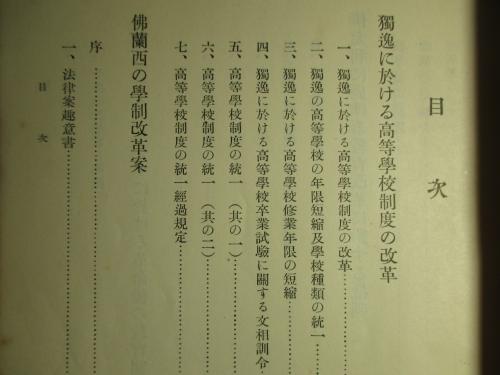 目次
獨逸に於ける高等學校制度の改革
一、獨逸に於ける高等學校制度の改革……………
二、獨逸の高等學校の年限短縮及學校種類の統一……
三、獨逸に於ける高等學校修業年限の短縮…………
四、獨逸に於ける高等學校卒業試驗に關する文相訓令…
五、高等學校制度の統一（其の一）……………………
六、高等學校制度の統一（其の二）……………………
七、高等學校制度の統一經過規定………………………
佛蘭西の學制改革案
序……………………………………………………
一、法律案趣意書……………………………………
目次